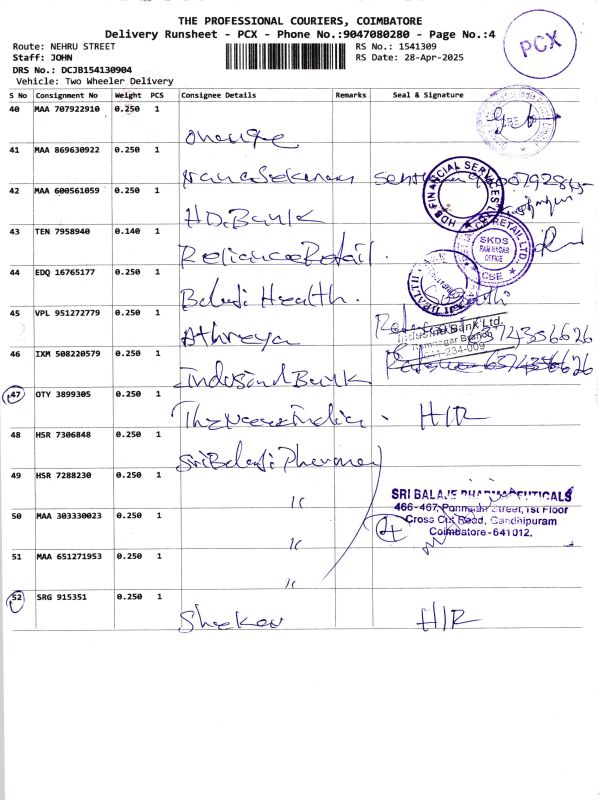 THE PROFESSIONAL COURIERS, COIMBATORE
Delivery Runsheet - PCX - Phone No.:9047080280 - Page No.:4
PCX
Route: NEHRU STREET
RS No.: 1541309
Staff: JOHN
RS Date: 28-Apr-2025
DRS No.: DCJB154130904
Vehicle: Two Wheeler Delivery
S No Consignment No Weight PCS Consignee Details Remarks Seal & Signature
40 MAA 707922910 0.250 1
41 MAA 869630922 0.250 1
42 MAA 600561059 0.250 1
HDB Bank
HDB FINANCIAL SERVICES
43 TEN 7958940 0.140 1
Reliance Retail.
SKDS
RAM NAGAR
OFFICE
RETAIL LTD.
CBE
44 EDQ 16765177 0.250 1
Balaji Health.
45 VPL 951272779 0.250 1
Athreya
IndusInd Bank Ltd.
Ramnagar Branch
46 IXM 508220579 0.250 1
Indusand Bank
47 OTY 3899305 0.250 1
HIR
48 HSR 7306848 0.250 1
Sri Balaji Pharmacy
49 HSR 7288230 0.250 1
SRI BALAJE PHARMACEUTICALS
466-467, Ponnaian Street, 1st Floor
Cross Cut Road, Gandhipuram
Coimbatore-641012.
4
50 MAA 303330023 0.250 1
51 MAA 651271953 0.250 1
52 SRG 915351 0.250 1
HIR